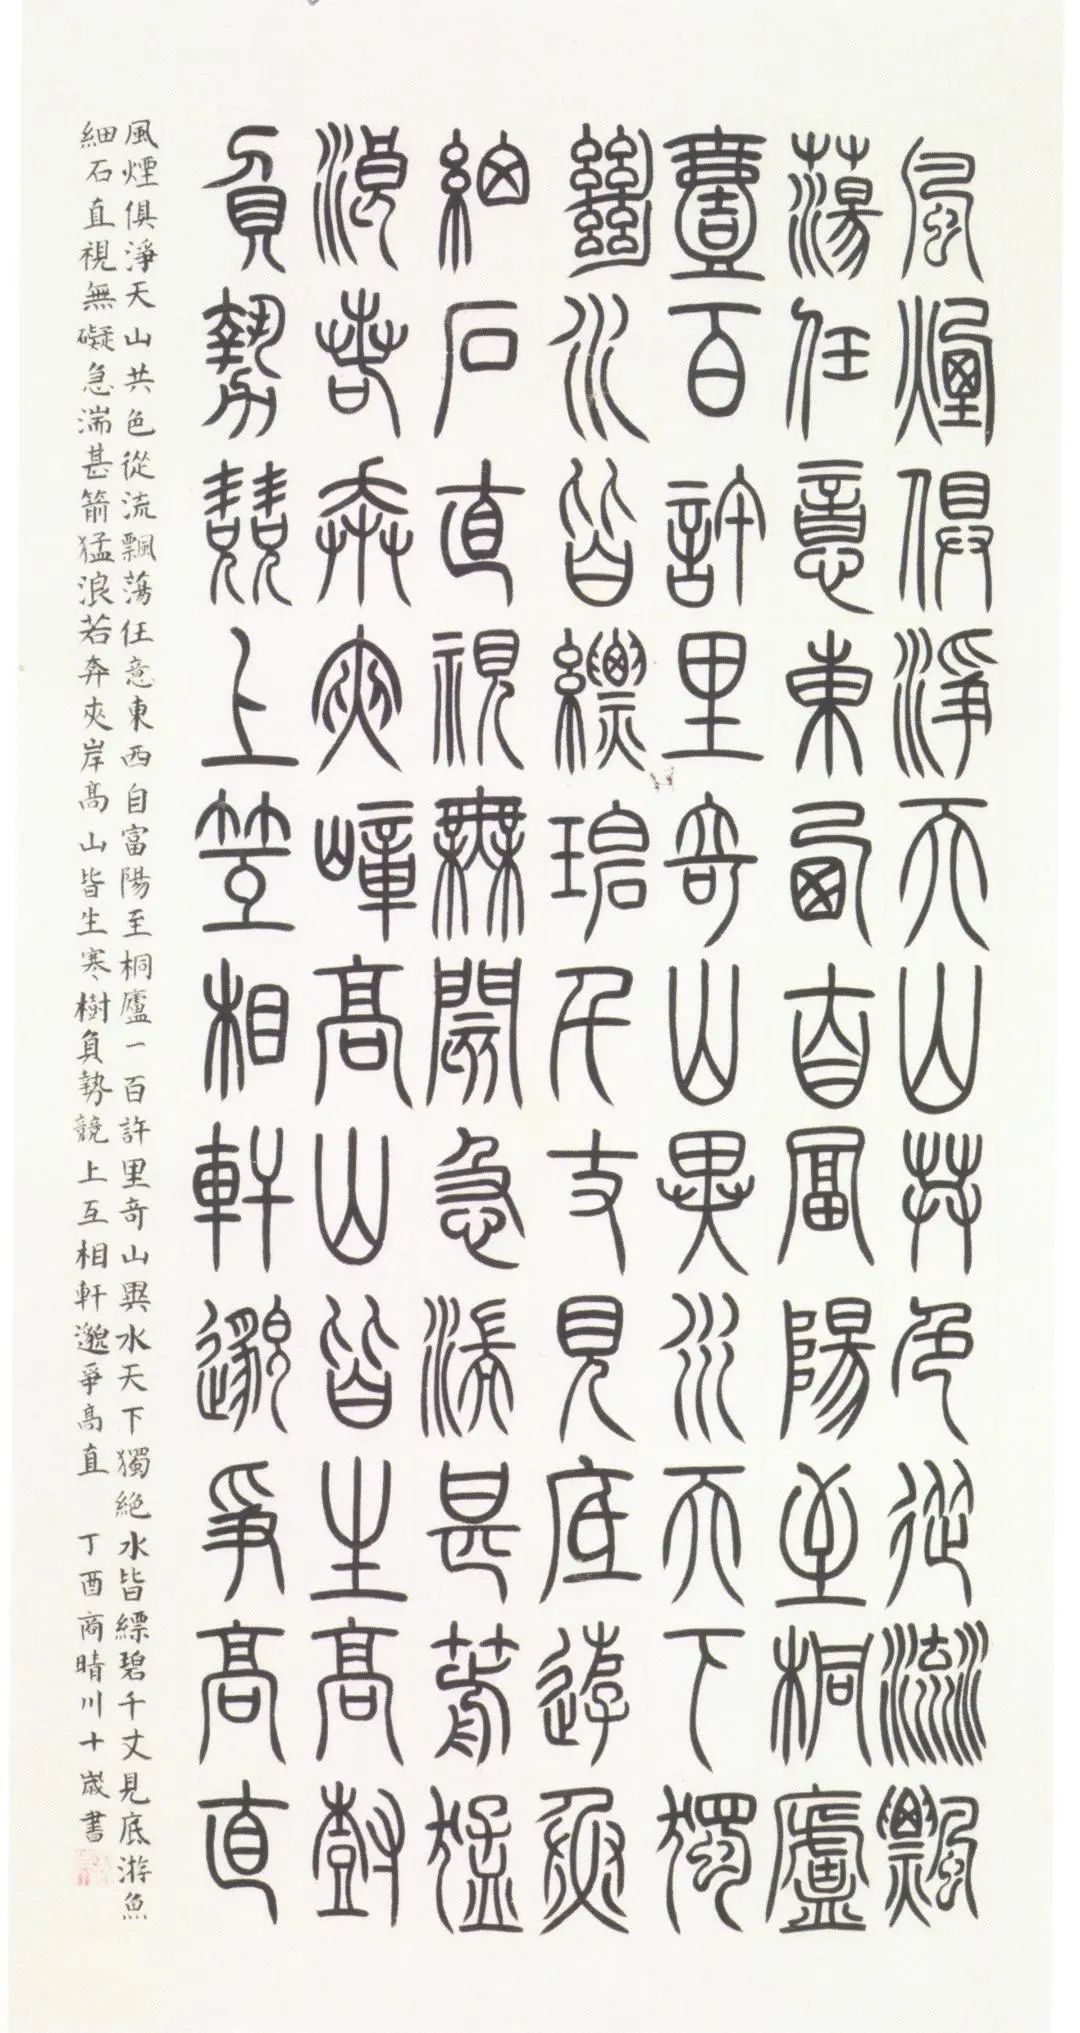 風煙俱淨天山共色從流飄
蕩任意東西自富陽至桐廬
壹百許里奇山異水天下獨
絕水皆縹碧千丈見底遊魚
細石直視無礙急湍甚箭猛
浪若奔夾嶂高山皆生高樹
負勢競上互相軒邈爭高直
風煙俱淨天山共色從流飄蕩任意東西自富陽至桐廬一百許里奇山異水天下獨絕水皆縹碧千丈見底游魚
細石直視無礙急湍甚箭猛浪若奔夾岸高山皆生寒樹負勢競上互相軒邈爭高直 丁酉商晴川十歲書